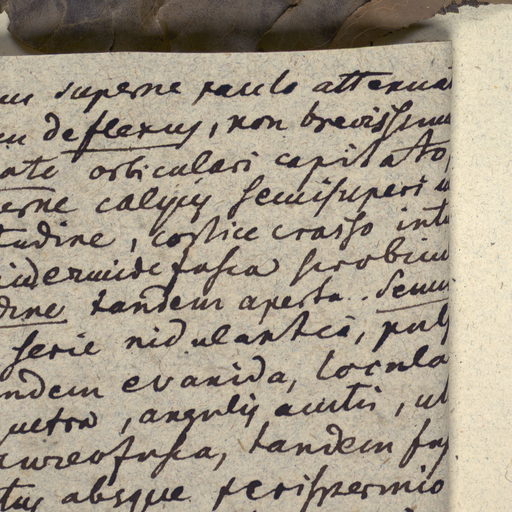 us superne paulo attenua
deflexus, non brevissim
orbiculari capitato,
erne calycis semisuperi
tudine, cortice crasso int
idermide fusca scrobicu
dine tandem aperta. Semi
serie nidulantia, pulp
ndem evanida, locula
quetra, angulis acutis, ul
aureofusca, tandem fus
tus absque perispermio